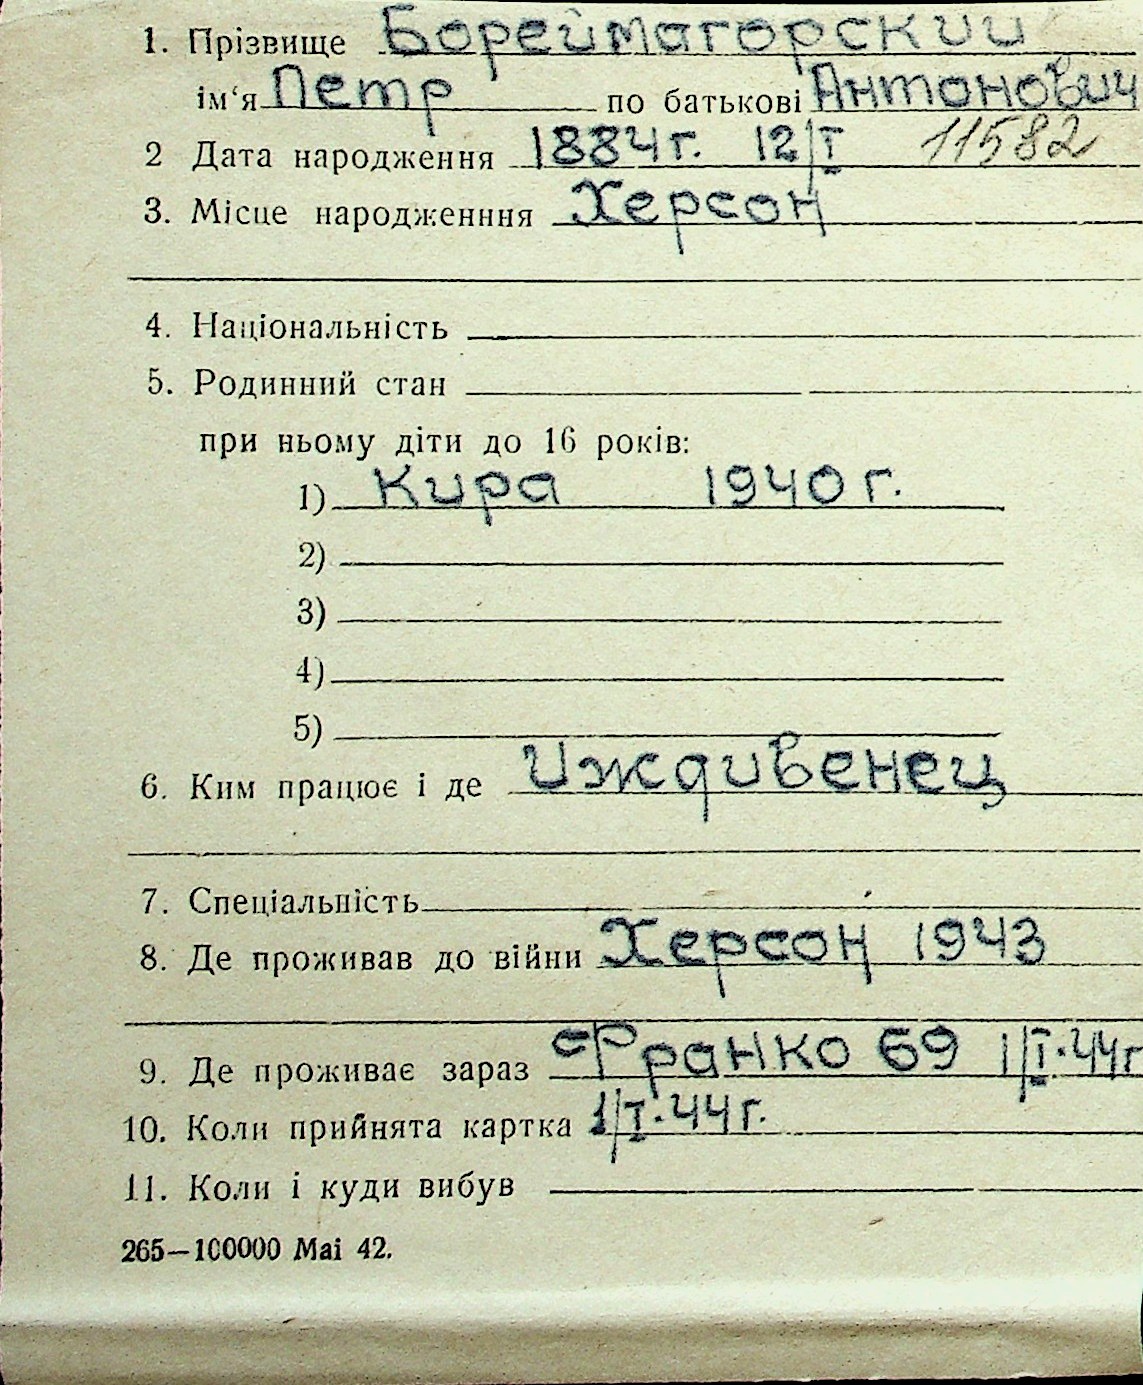 1. Прізвище Бореймагорский
ім‘я Петр по батькові Антонович
2 Дата народження 1884 г. 12/I 11582
3. Місце народженння Херсон
4. Національність
5. Родинний стан
при ньому діти до 16 років:
1) Кира 1940 г.
2)
3)
4)
5)
6. Ким працює і де Иждивенец
7. Спеціальність
8. Де проживав до війни Херсон 1943
9. Де проживає зараз Франко 69 1/I.44г
10. Коли прийнята картка 1/I.44г.
11. Коли і куди вибув
265—100000 Mai 42.